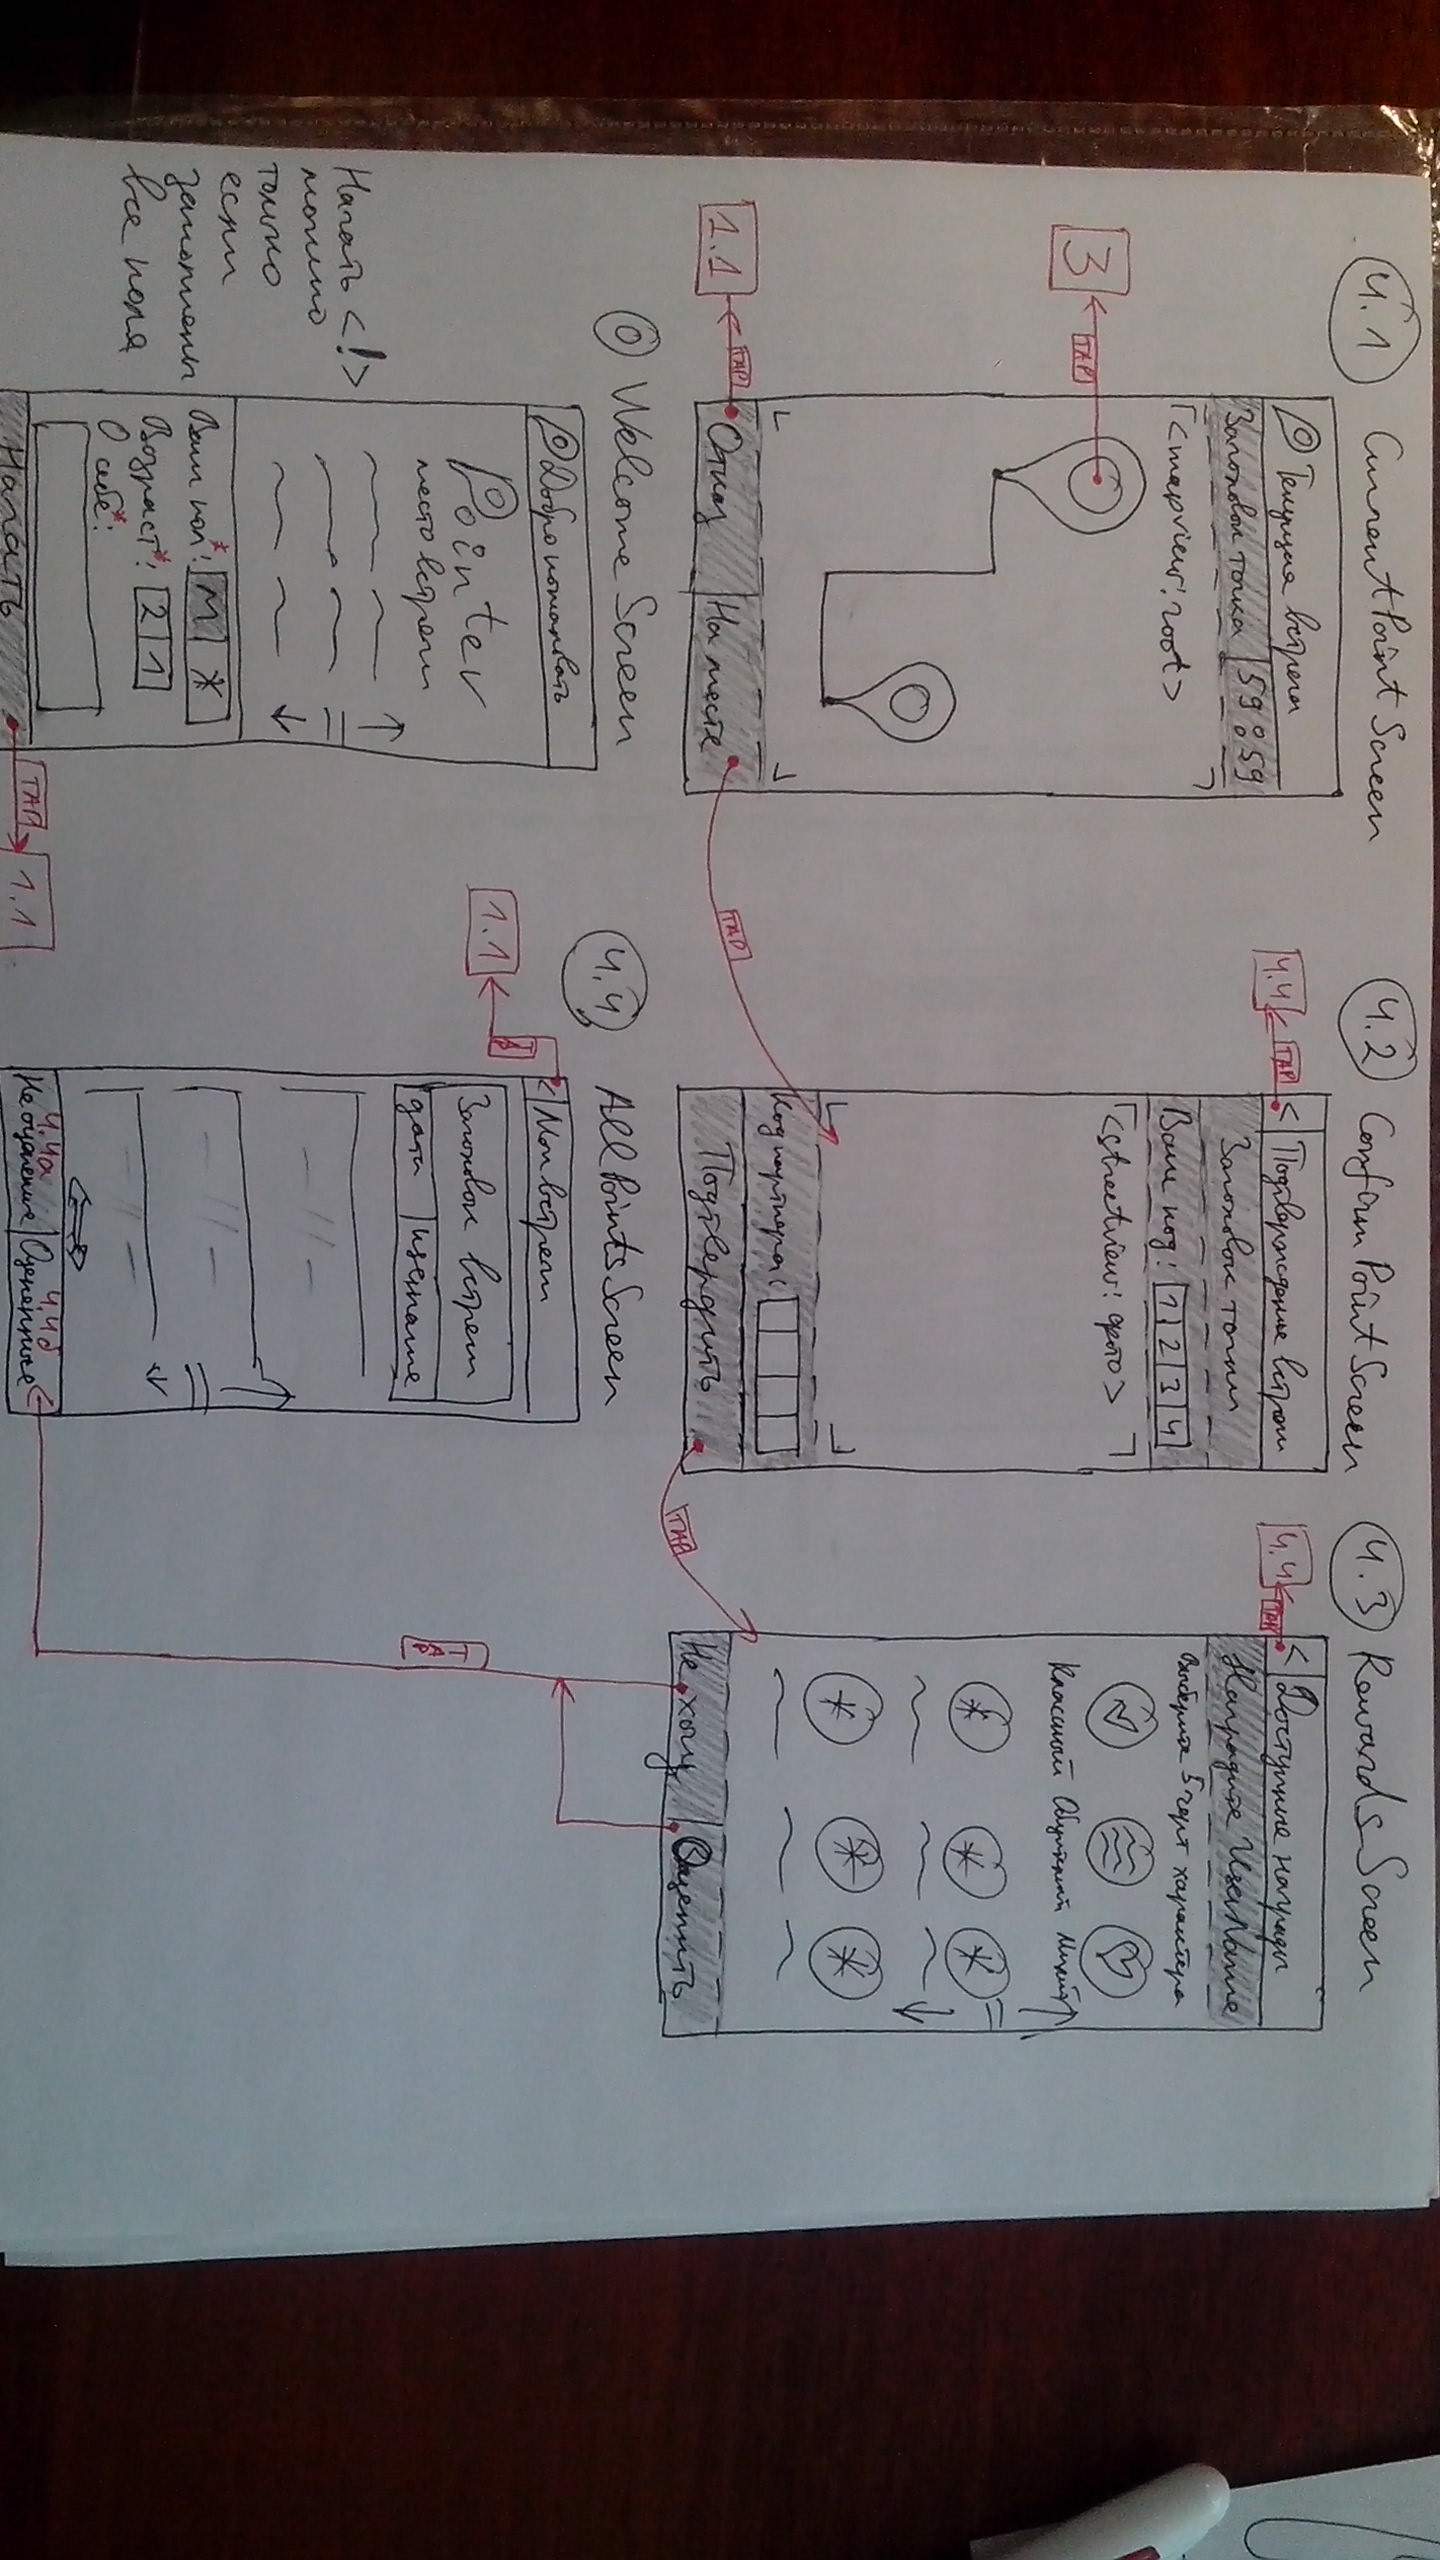 4.1 CurrentPointScreen
Текущая встреча
Заголовок точка 59:59
<mapview: root>
3 TAP
1.1 TAP Отказ На месте
TAP
4.2 ConfirmPointScreen
4.4 TAP < Подтверждение встречи
Заголовок точки
Ваш код: 1 2 3 4
<streetview: фото>
Код партнера:
Подтвердить
TAP
4.3 RewardsScreen
4.4 TAP < Доступные награды
Наградите UserName
Выберите 5 черт характера
Классный
Не хочу Оценить
TAP
0 WelcomeScreen
Добро пожаловать
Pointer
место встречи
Ваш пол*: М Ж
Возраст*: 2 1
О себе*:
Начать TAP 1.1
Начать <!>
можно
только
если
заполнены
все поля
4.4 AllPointsScreen
< Мои встречи
1.1 TAP
Заголовок встречи
дата username
— // —
— // —
— // —
4.4а 4.4б
Не оцененные Оцененные